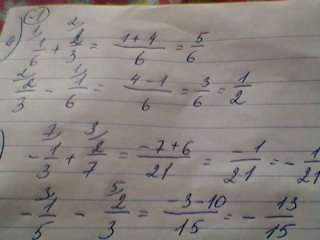 6) -1
1/6 + 2/3 = (1+4)/6 = 5/6
2/3 - 1/6 = (4-1)/6 = 3/6 = 1/2
) -1/3 + 2/7 = (-7+6)/21 = -1/21 = -1/21
-1/5 - 2/3 = (-3-10)/15 = -13/15